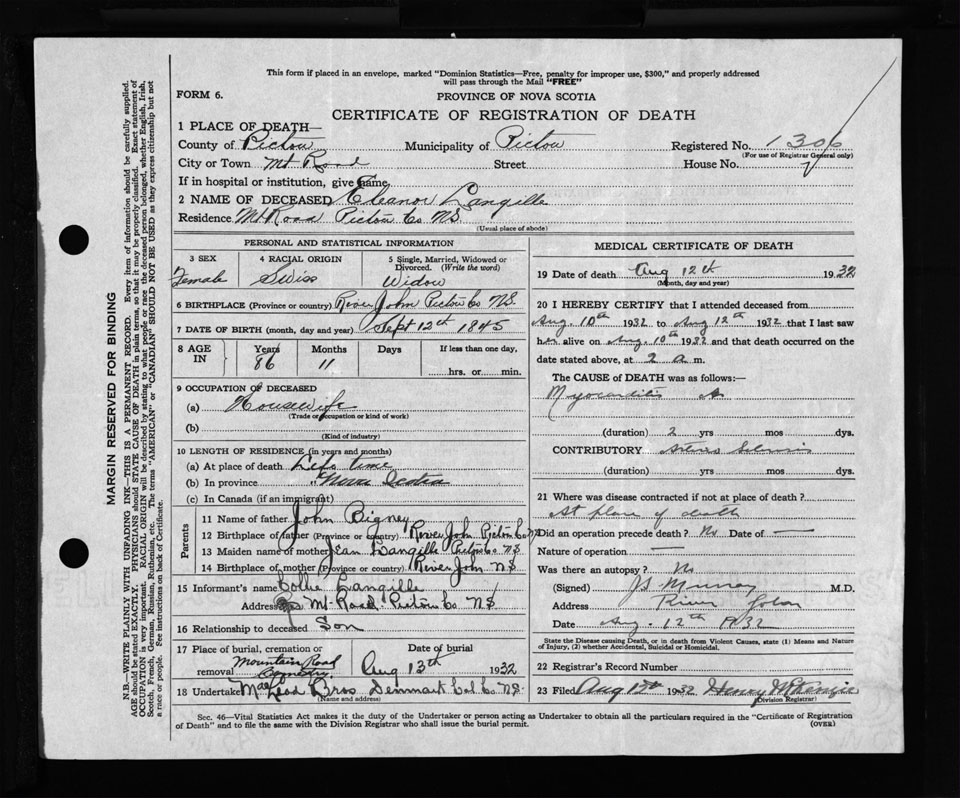 This form if placed in an envelope, marked "Dominion Statistics—Free, penalty for improper use, $300," and properly addressed
will pass through the Mail "FREE"
FORM 6.
PROVINCE OF NOVA SCOTIA
CERTIFICATE OF REGISTRATION OF DEATH
1 PLACE OF DEATH—
County of Pictou Municipality of Pictou Registered No. 1306
(For use of Registrar General only)
City or Town Mt Road Street House No.
If in hospital or institution, give name
2 NAME OF DECEASED Eleanor Langille
Residence Mt Road Pictou Co NS.
(Usual place of abode)
PERSONAL AND STATISTICAL INFORMATION
3 SEX 4 RACIAL ORIGIN 5 Single, Married, Widowed or Divorced. (Write the word)
Female Swiss Widow
6 BIRTHPLACE (Province or country) River John Pictou Co N.S.
7 DATE OF BIRTH (month, day and year) Sept 12th 1845
8 AGE IN Years Months Days If less than one day,
86 11 hrs. or min.
9 OCCUPATION OF DECEASED
(a) Housewife
(Trade or occupation or kind of work)
(b)
(Kind of industry)
10 LENGTH OF RESIDENCE (in years and months)
(a) At place of death Life time
(b) In province " Nova Scotia
(c) In Canada (if an immigrant)
Parents
11 Name of father John Bigney
12 Birthplace of father (Province or country) River John Pictou Co NS
13 Maiden name of mother Jean Langille Pictou Co NS
14 Birthplace of mother (Province or country) River John NS
15 Informant's name Collie Langille
Address Mt Road Pictou Co NS
16 Relationship to deceased Son
17 Place of burial, cremation or removal Mountain Road Cemetry Date of burial Aug 13th 1932
18 Undertaker MacLeod Bros Denmark Col. Co. N.S.
(Name and address)
MEDICAL CERTIFICATE OF DEATH
19 Date of death Aug 12th 1932
(Month, day and year)
20 I HEREBY CERTIFY that I attended deceased from
Aug. 10th 1932 to Aug 12th 1932 that I last saw
her alive on Aug. 10th 1932 and that death occurred on the
date stated above, at 2 a m.
The CAUSE of DEATH was as follows:—
Myocarditis
(duration) 2 yrs mos dys.
CONTRIBUTORY
(duration) yrs mos dys.
21 Where was disease contracted if not at place of death?
At place of death
Did an operation precede death? No Date of —
Nature of operation —
Was there an autopsy? No
(Signed) J S Murray M.D.
Address River John
Date Aug. 12th 1932
State the Disease causing Death, or in death from Violent Causes, state (1) Means and Nature
of Injury, (2) whether Accidental, Suicidal or Homicidal.
22 Registrar's Record Number
23 Filed Aug 1932 Henry McKenzie
(Division Registrar)
Sec. 46—Vital Statistics Act makes it the duty of the Undertaker or person acting as Undertaker to obtain all the particulars required in the "Certificate of Registration
of Death" and to file the same with the Division Registrar who shall issue the burial permit.
(OVER)
MARGIN RESERVED FOR BINDING
N.B.—WRITE PLAINLY WITH UNFADING INK—THIS IS A PERMANENT RECORD. Every item of information should be carefully supplied.
AGE should be stated EXACTLY. PHYSICIANS should STATE CAUSE OF DEATH in plain terms, so that it may be properly classified. Exact statement of
OCCUPATION is very important. RACIAL ORIGIN will be described by stating to what people or race the deceased person belonged, whether English, Irish,
Scotch, French, German, Russian, Ruthenian, etc. The terms "AMERICAN" or "CANADIAN" SHOULD NOT BE USED as they express citizenship but not
a race or people. See instructions on back of Certificate.